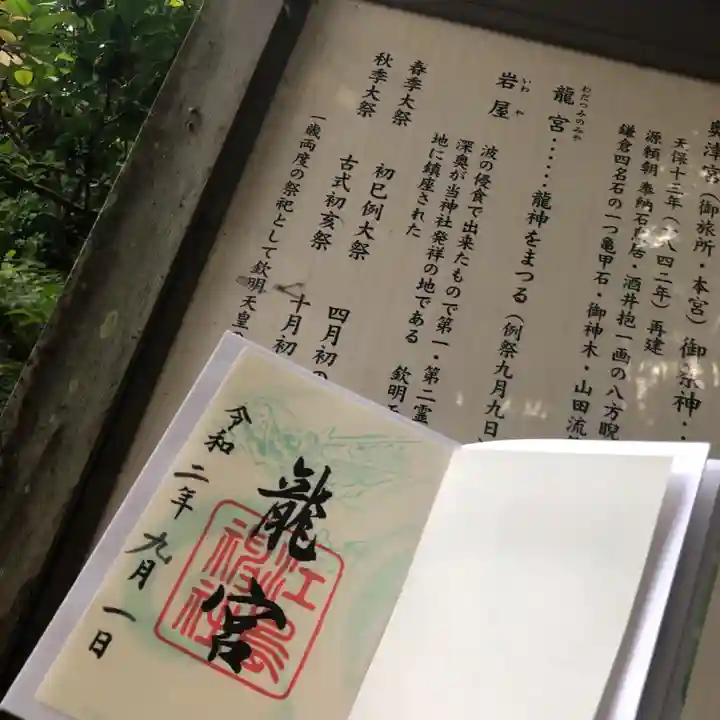 奥津宮(御旅所・本宮)御祭神・・
天保十三年(一八四二年)再建
源頼朝奉納石鳥居・酒井抱一画の八方睨
鎌倉四名石の一つ亀甲石・御神木・山田流
わだつみのみや
龍宮・・・・・龍神をまつる(例祭九月九日
いわや
岩屋
波の侵食で出来たもので第一・第二霊
深奥が当神社発祥の地である 欽明
地に鎮座された
春季大祭 初巳例大祭 四月初の
秋季大祭 古式初亥祭 十月初
一歳両度の祭祀として欽明天皇
龍宮
江島神社
令和二年九月一日